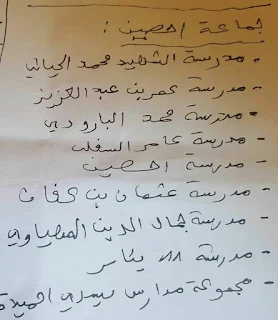 جماعة احصين :
- مدرسة الشهيد محمد الحياني
- مدرسة عمر بن عبد العزيز
- مدرسة محمد البارودي
- مدرسة عامر السفلى
- مدرسة احصين
- مدرسة عثمان بن عفان
- مدرسة جمال الدين المهياوي
- مدرسة
- مجموعة مدارس سيدي احميدة